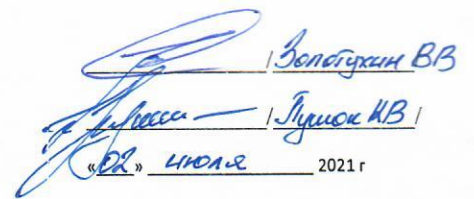 / Золотухин В.В
/ Пушок К.В /
«02» июля 2021 г